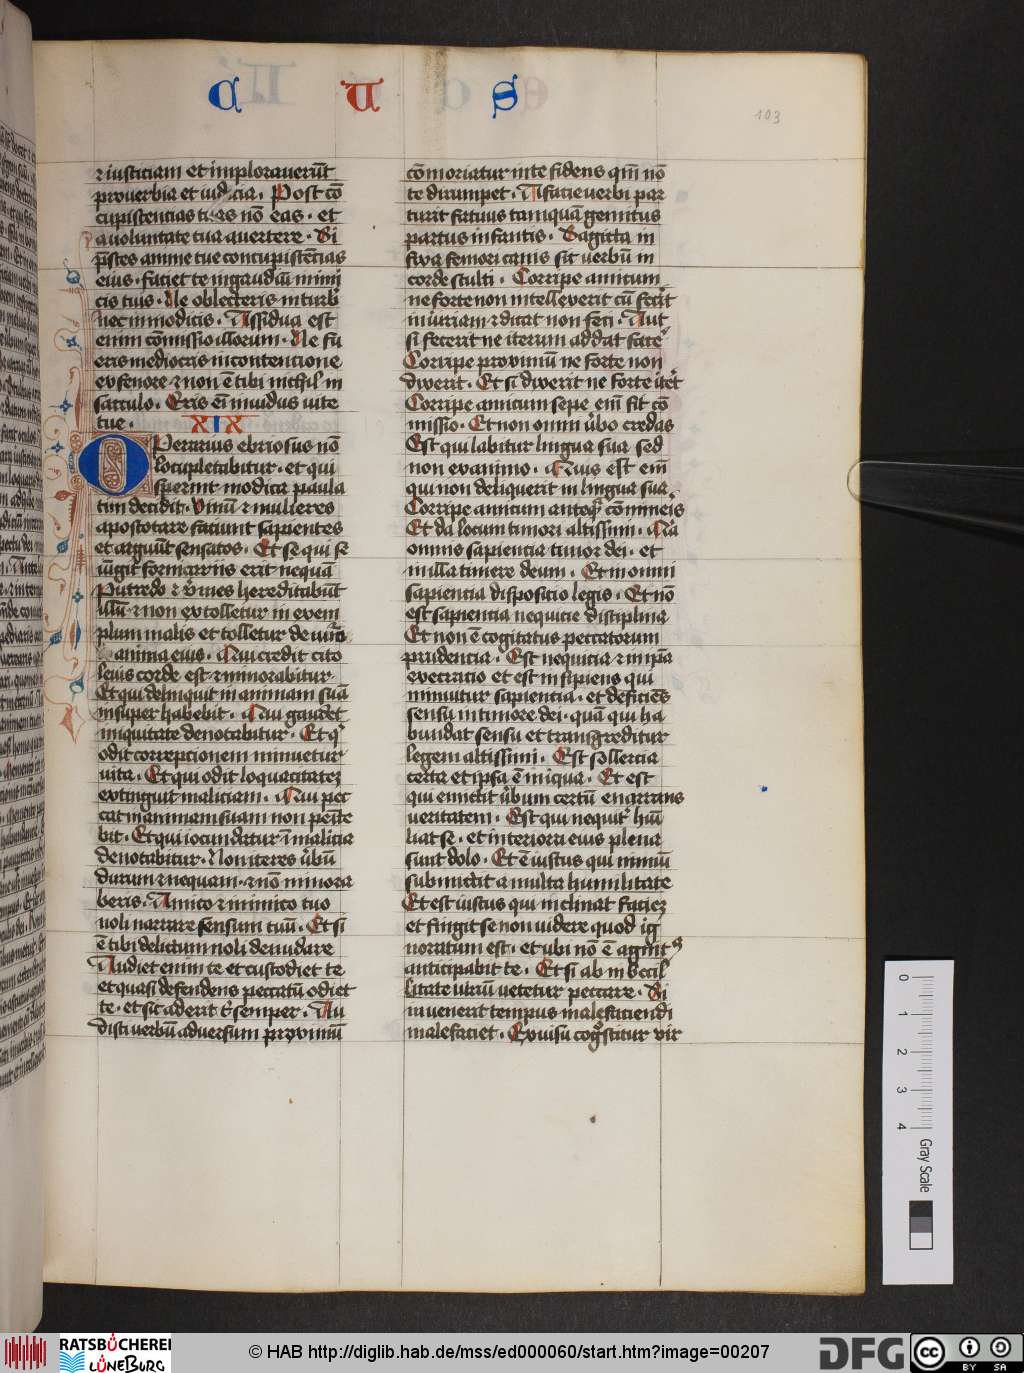 C U S
103
⁊ iusticiam et implorauerūt
prouerbia et iudicia. Post cō
cupiscentias tuas nō eas. et
a voluntate tua auertere. Si
p̄stes anime tue concupiscēcias
eius. faciet te in gaudiū inimi
cis tuis. Ne oblecteris in turb̾
nec in modicis. Assidua est
enim cōmissio illorum. Ne fu
eris mediocris in contentione
ex fenore ⁊ non ē tibi nichil in
sacculo. Eris eī inuidus uite
tue. XIX
OPerarius ebriosus nō
locupletabitur. et qui
spernit modica paula
tim decidit. Vinū ⁊ mulieres
apostotare faciunt sapientes
et arguūt sensatos. Et se qui se
iūgit fornicariis erit nequā
Putredo ⁊ v̾mes hereditabūt
illū ⁊ non extolletur in exem
plum malis et tolletur de nūo
anima eius. Qui credit cito
leuis corde est ⁊ minorabitur
Et qui delinquit in animam suā
insuper habebit. Qui gaudet
iniquitate denotabitur. Et q̇
odit correpcionem minuetur
vita. Et qui odit loquacitatēz
extinguit maliciam. Qui pec
cat in animam suam non penite
bit. Et qui iocundatur ī malicia
denotabitur. Non iteres v̾bū
durum ⁊ nequam. ⁊ nō minora
beris. Amico ⁊ inimico tuo
noli narrare sensum tuū. Et si
ē tibi delictum noli denudare
Audiet enim te et custodiet te
et quasi defendens peccatū odiet
te. et sic aderit t̾ semper. Au
disti verbū aduersum proximū
cōmoriatur in te fidens qm̄ nō
te dirumpet. A facie verbi par
turit fatuus tamquā gemitus
partus infantis. Sagitta in
fixa femori canis sic verbū in
corde stulti. Corripe amicum
ne forte non intellexerit cū fec̾it
in v̾riam ⁊ dicat non feci. Aut
si fecerit ne iterum addat fac̾e
Corripe proximū ne forte non
dixerit. Et si dixerit ne forte it̾et
Corripe amicum sepe eīm fit cō
missio. Et non omni v̾bo credas
Est qui labitur lingua sua sed
non ex animo. Quis est eīm
qui non deliquerit in lingua sua
Corripe amicum anteq̄ cōmineis
Et da locum timori altissimi. Qia
omnis sapiencia timor dei. et
in illa timere deum. Et in omni
sapiencia dispositio legis. Et nō
est sapiencia nequicie disciplina
Et non ē cogitatus peccatorum
prudencia. Est nequicia ⁊ in ip̄a
execratio et est insipiens qui
minuitur sapiencia. et deficiēs
sensu in timore dei. quā qui ha
bundat sensu et transgreditur
legem altissimi. Est sollercia
certa et ipsa ē iniqua. Et est
qui emittit v̾bum certū enarrans
veritatem. Est qui nequit̾ hūi
liat se. et interiora eius plena
sunt dolo. Et ē iustus qui nimiū
submittit a multa humilitate
Et est iustus qui inclinat faciez
et fingit se non uidere quod ig
noratum est. et ubi nō ē agnitꝰ
anticipabit te. Et si ab in becil
litate viriū vetetur peccare. Si
inuenerit tempus malefaciendi
malefaciet. Ex uisu cogⁿoscitur vir
0
1
2
3
4
Gray Scale
RATSBÜCHEREI
LÜNEBURG
© HAB http://diglib.hab.de/mss/ed000060/start.htm?image=00207
DFG
cc
BY SA